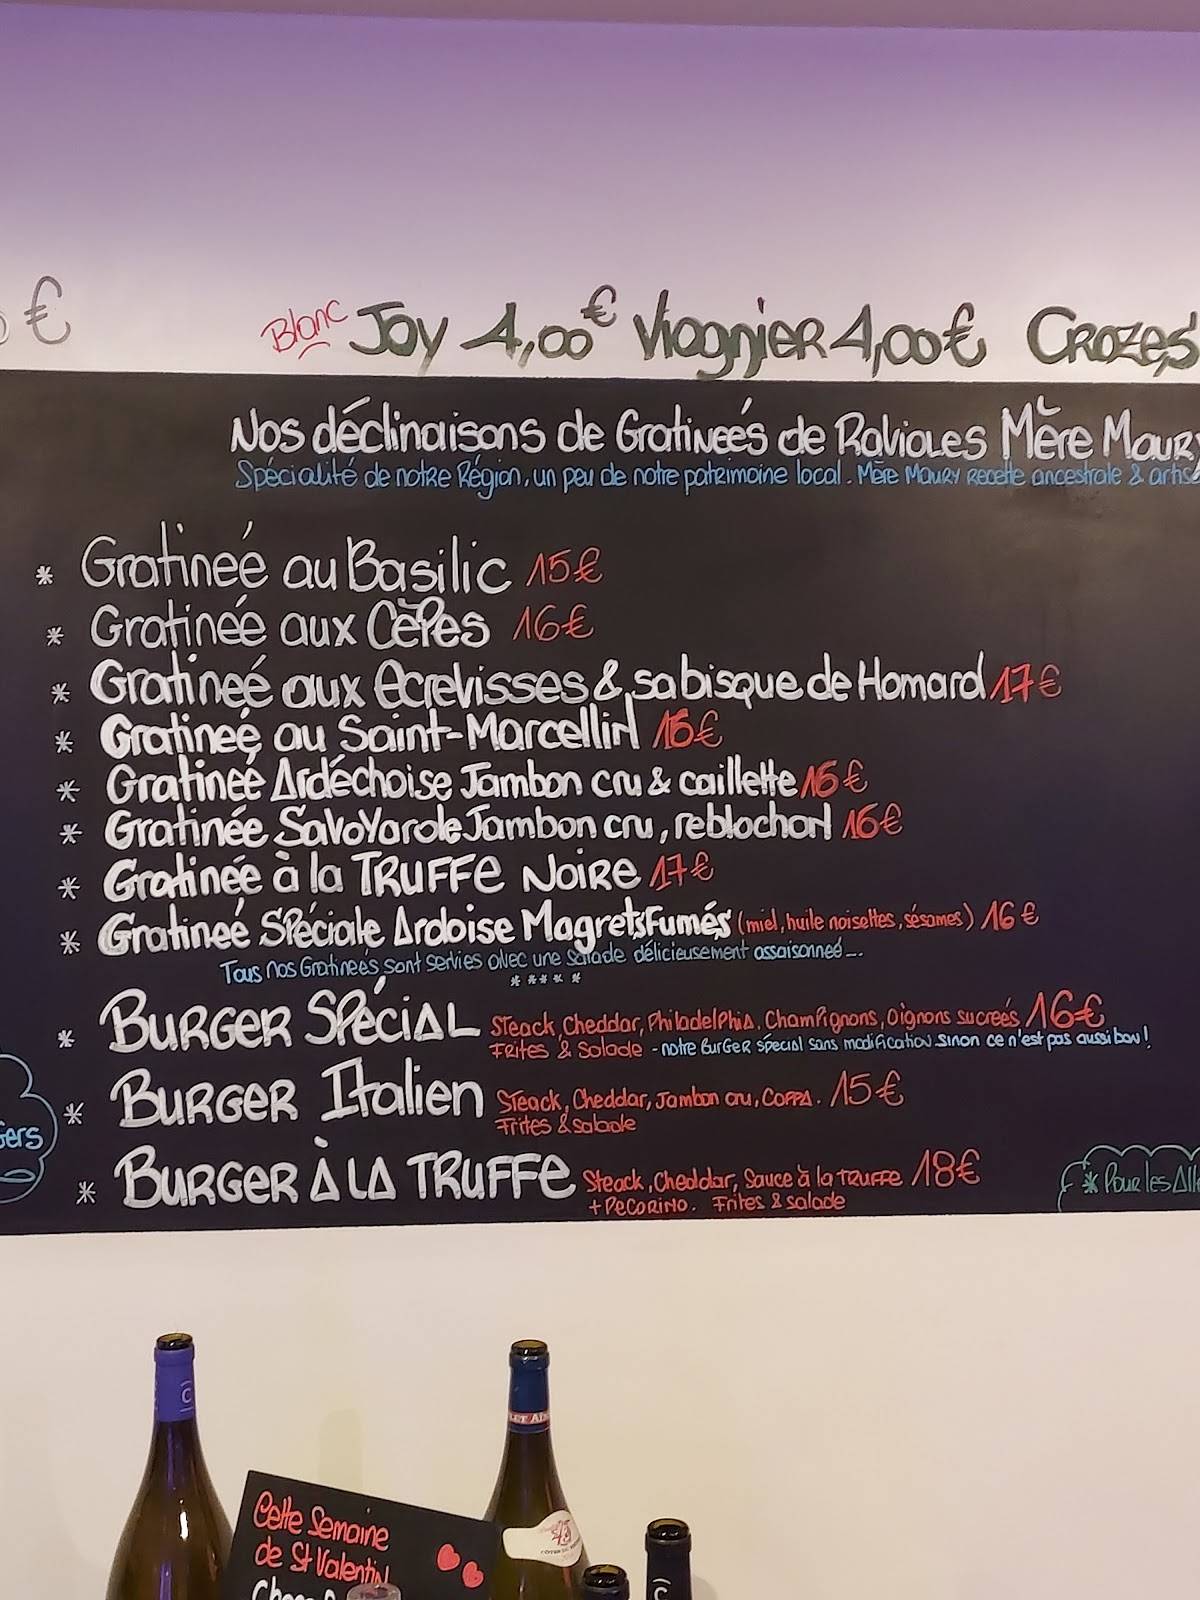 €
Blanc Joy 4,00€ Viognier 4,00€ Crozes
Nos déclinaisons de Gratineés de Ravioles Mère Maury
Spécialité de notre Région, un peu de notre patrimoine local. Mère Maury recette ancestrale & artisa
* Gratineé au Basilic 15€
* Gratinéé aux Cèpes 16€
* Gratineé aux ecrevisses & sa bisque de Homard 17€
* Gratineé au Saint-Marcellin 16€
* Gratineé Ardéchoise Jambon cru & caillette 16€
* Gratinée Savoyarde Jambon cru, reblochon 16€
* Gratinée à la TRUFFe Noire 17€
* Gratineé Spéciale Ardoise Magrets Fumés (miel, huile noisettes, sésames) 16€
Tous nos Gratineés sont servies avec une salade délicieusement assaisonneé...
*****
* Burger Spécial Steack, Cheddar, Philadelphia, Champignons, Oignons sucreés 16€
Frites & Salade - notre Burger spécial sans modification sinon ce n'est pas aussi bon!
* Burger Italien Steack, Cheddar, Jambon cru, Coppa. 15€
Frites & salade
gers
* Burger à la TRUFFe Steack, Cheddar, Sauce à la TRUFFe 18€
+ Pecorino. Frites & salade
* Pour les Alle
C
LET AÎN
Cette Semaine
de St Valentin
45
C